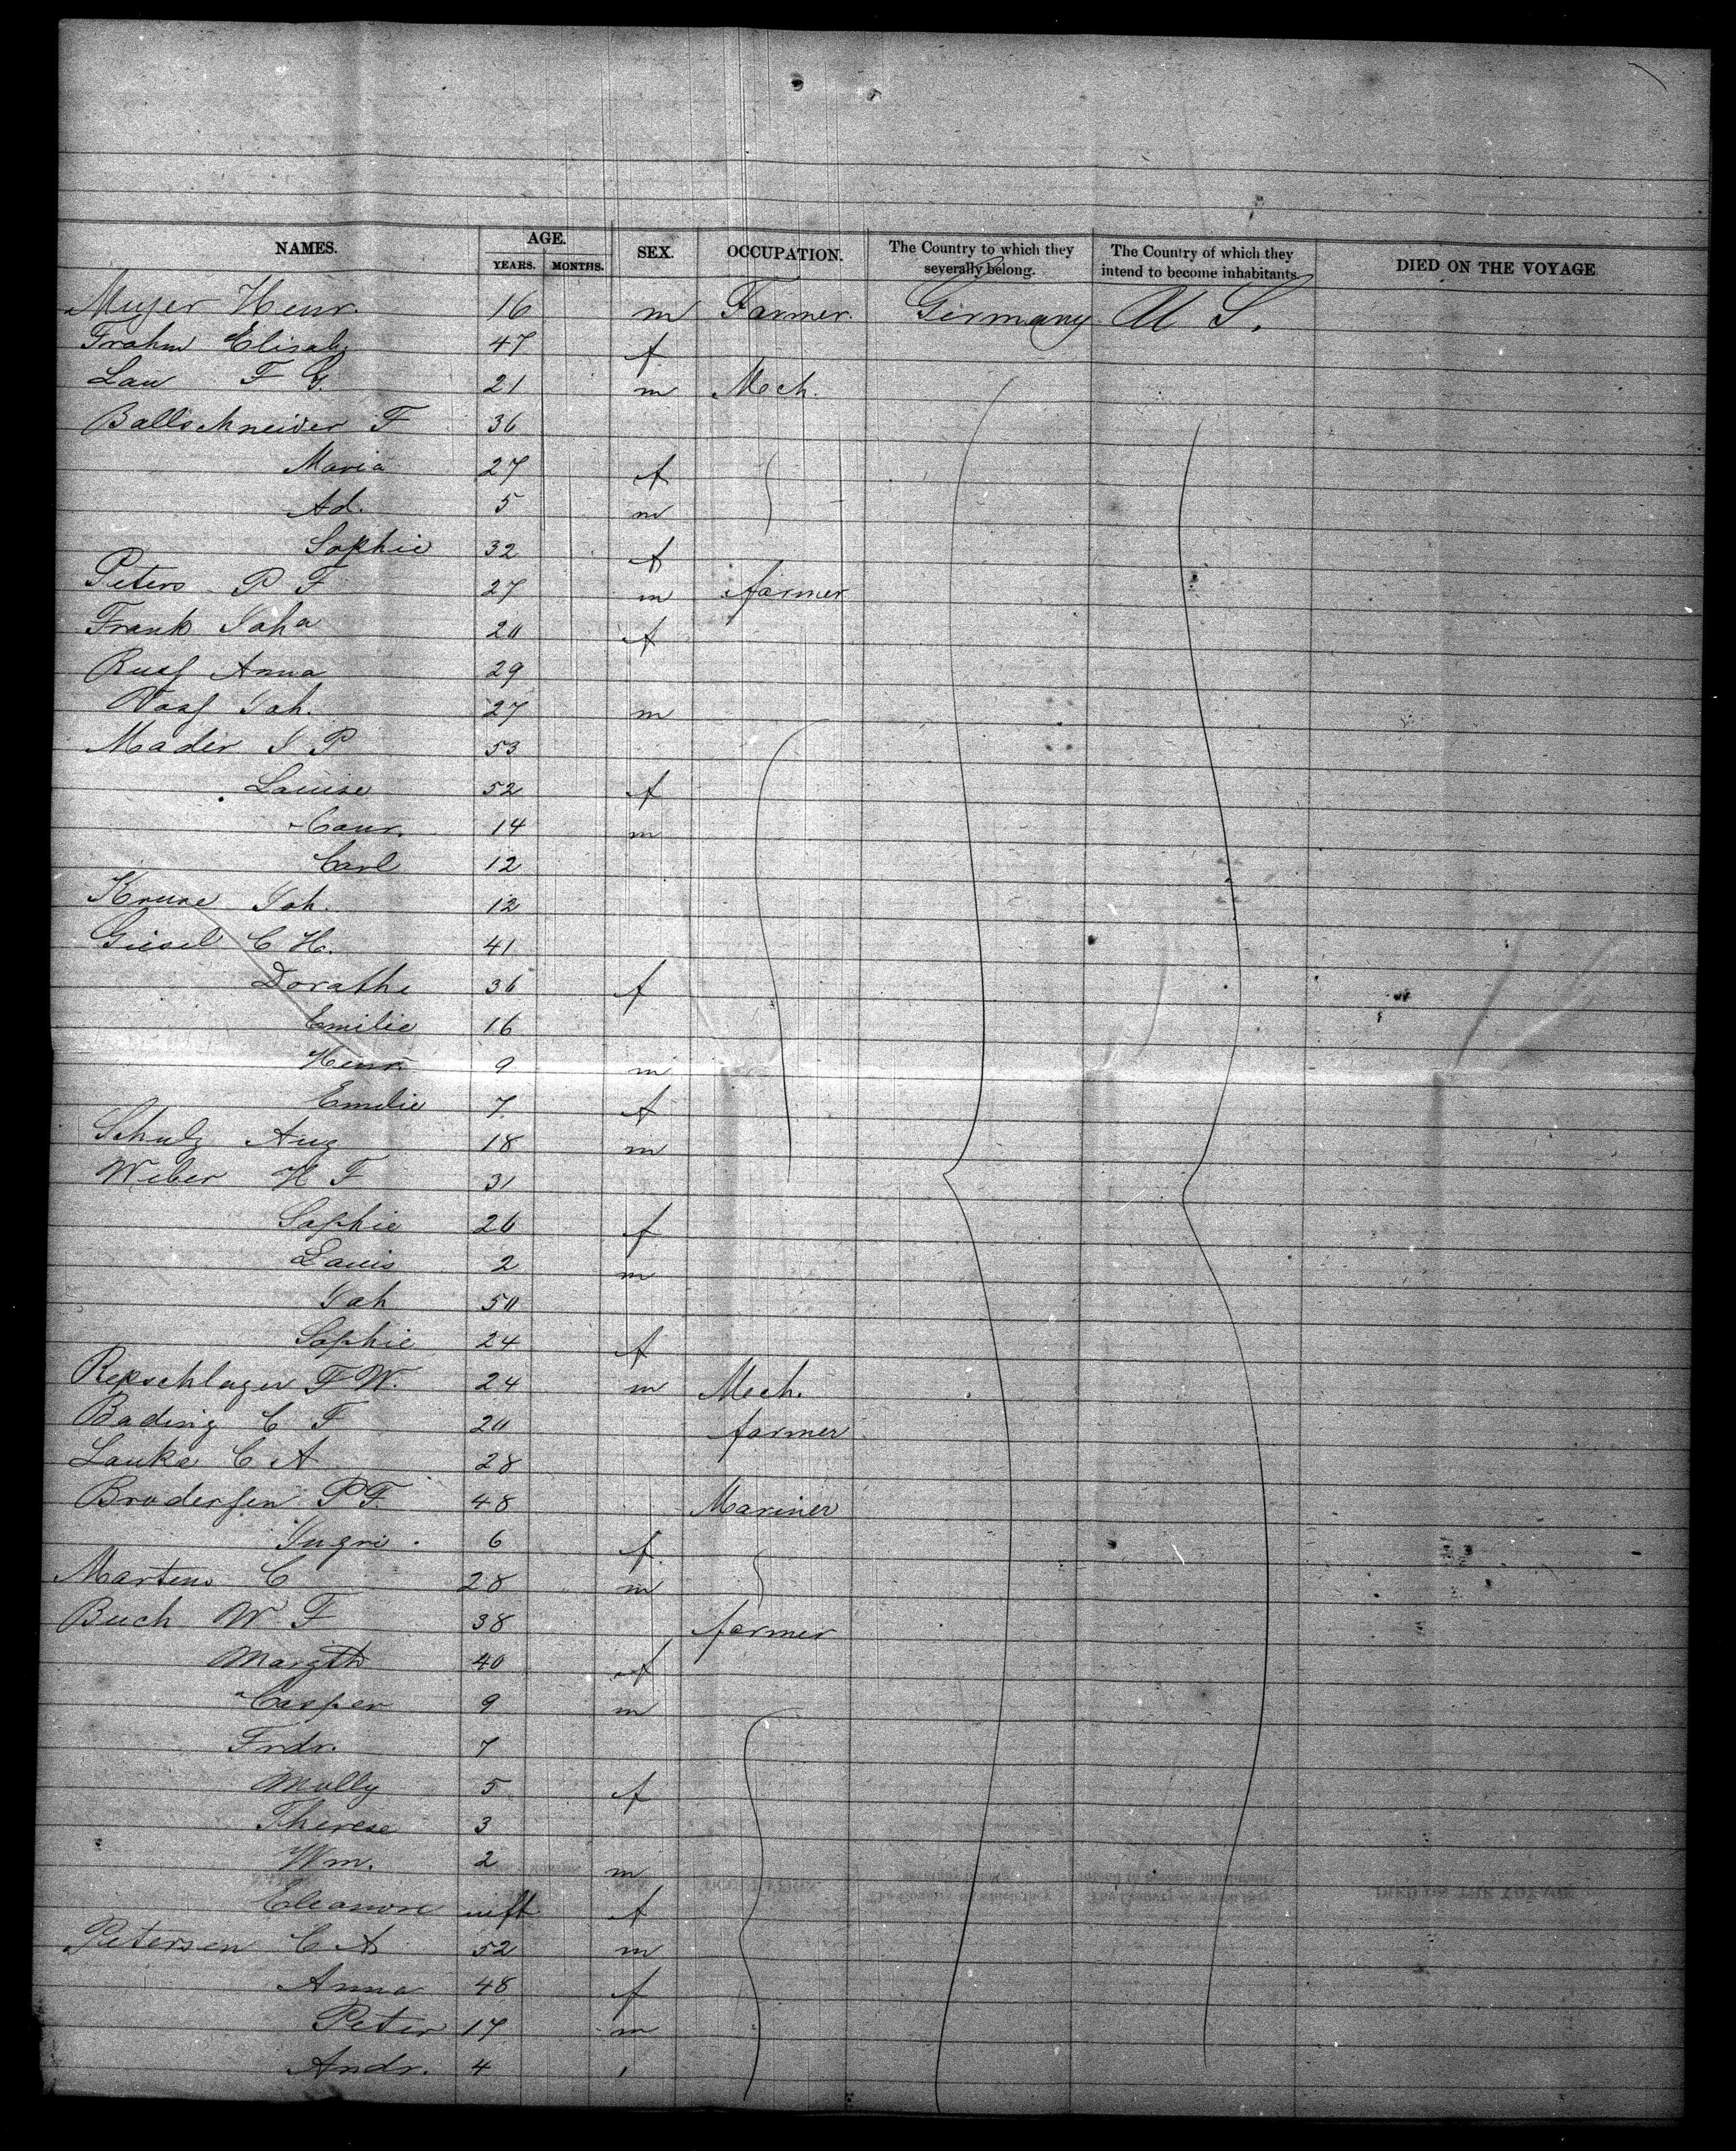 NAMES. AGE. SEX. OCCUPATION. The Country to which they severally belong. The Country of which they intend to become inhabitants. DIED ON THE VOYAGE
YEARS. MONTHS.
Meyer Henr. 16 m Farmer. Germany U S.
Frahm Elisab 47 f
Lau F G. 21 m Mech.
Ballschneider F 36
Maria 27 f
Ad. 5 m
Sophie 32 f
Peters P F 27 m farmer
Frank Joha 20 f
Russ Anna 29
Voss Joh. 27 m
Mader J P 53
Louise 52 f
Conr. 14 m
Carl 12
Kruse Joh. 12
Giesel C H. 41
Dorathe 36 f
Emilie 16
Henr. 9 m
Emilie 7 f
Schulz Aug 18 m
Weber H F 31
Sophie 26 f
Louis 2 m
Joh 50
Sophie 24 f
Repschlager F W. 24 m Mech.
Bading C F 20 farmer
Lauke C A 28
Brodersen P F. 48 Mariner
Ingri. 6 f
Martens C 28 m
Buch W F 38 farmer
Margth 40 f
Casper 9 m
Frdr. 7
Molly 5 f
Therese 3
Wm. 2 m
Eleanore inft f
Petersen C A 52 m
Anna 48 f
Peter 17 m
Andr. 4